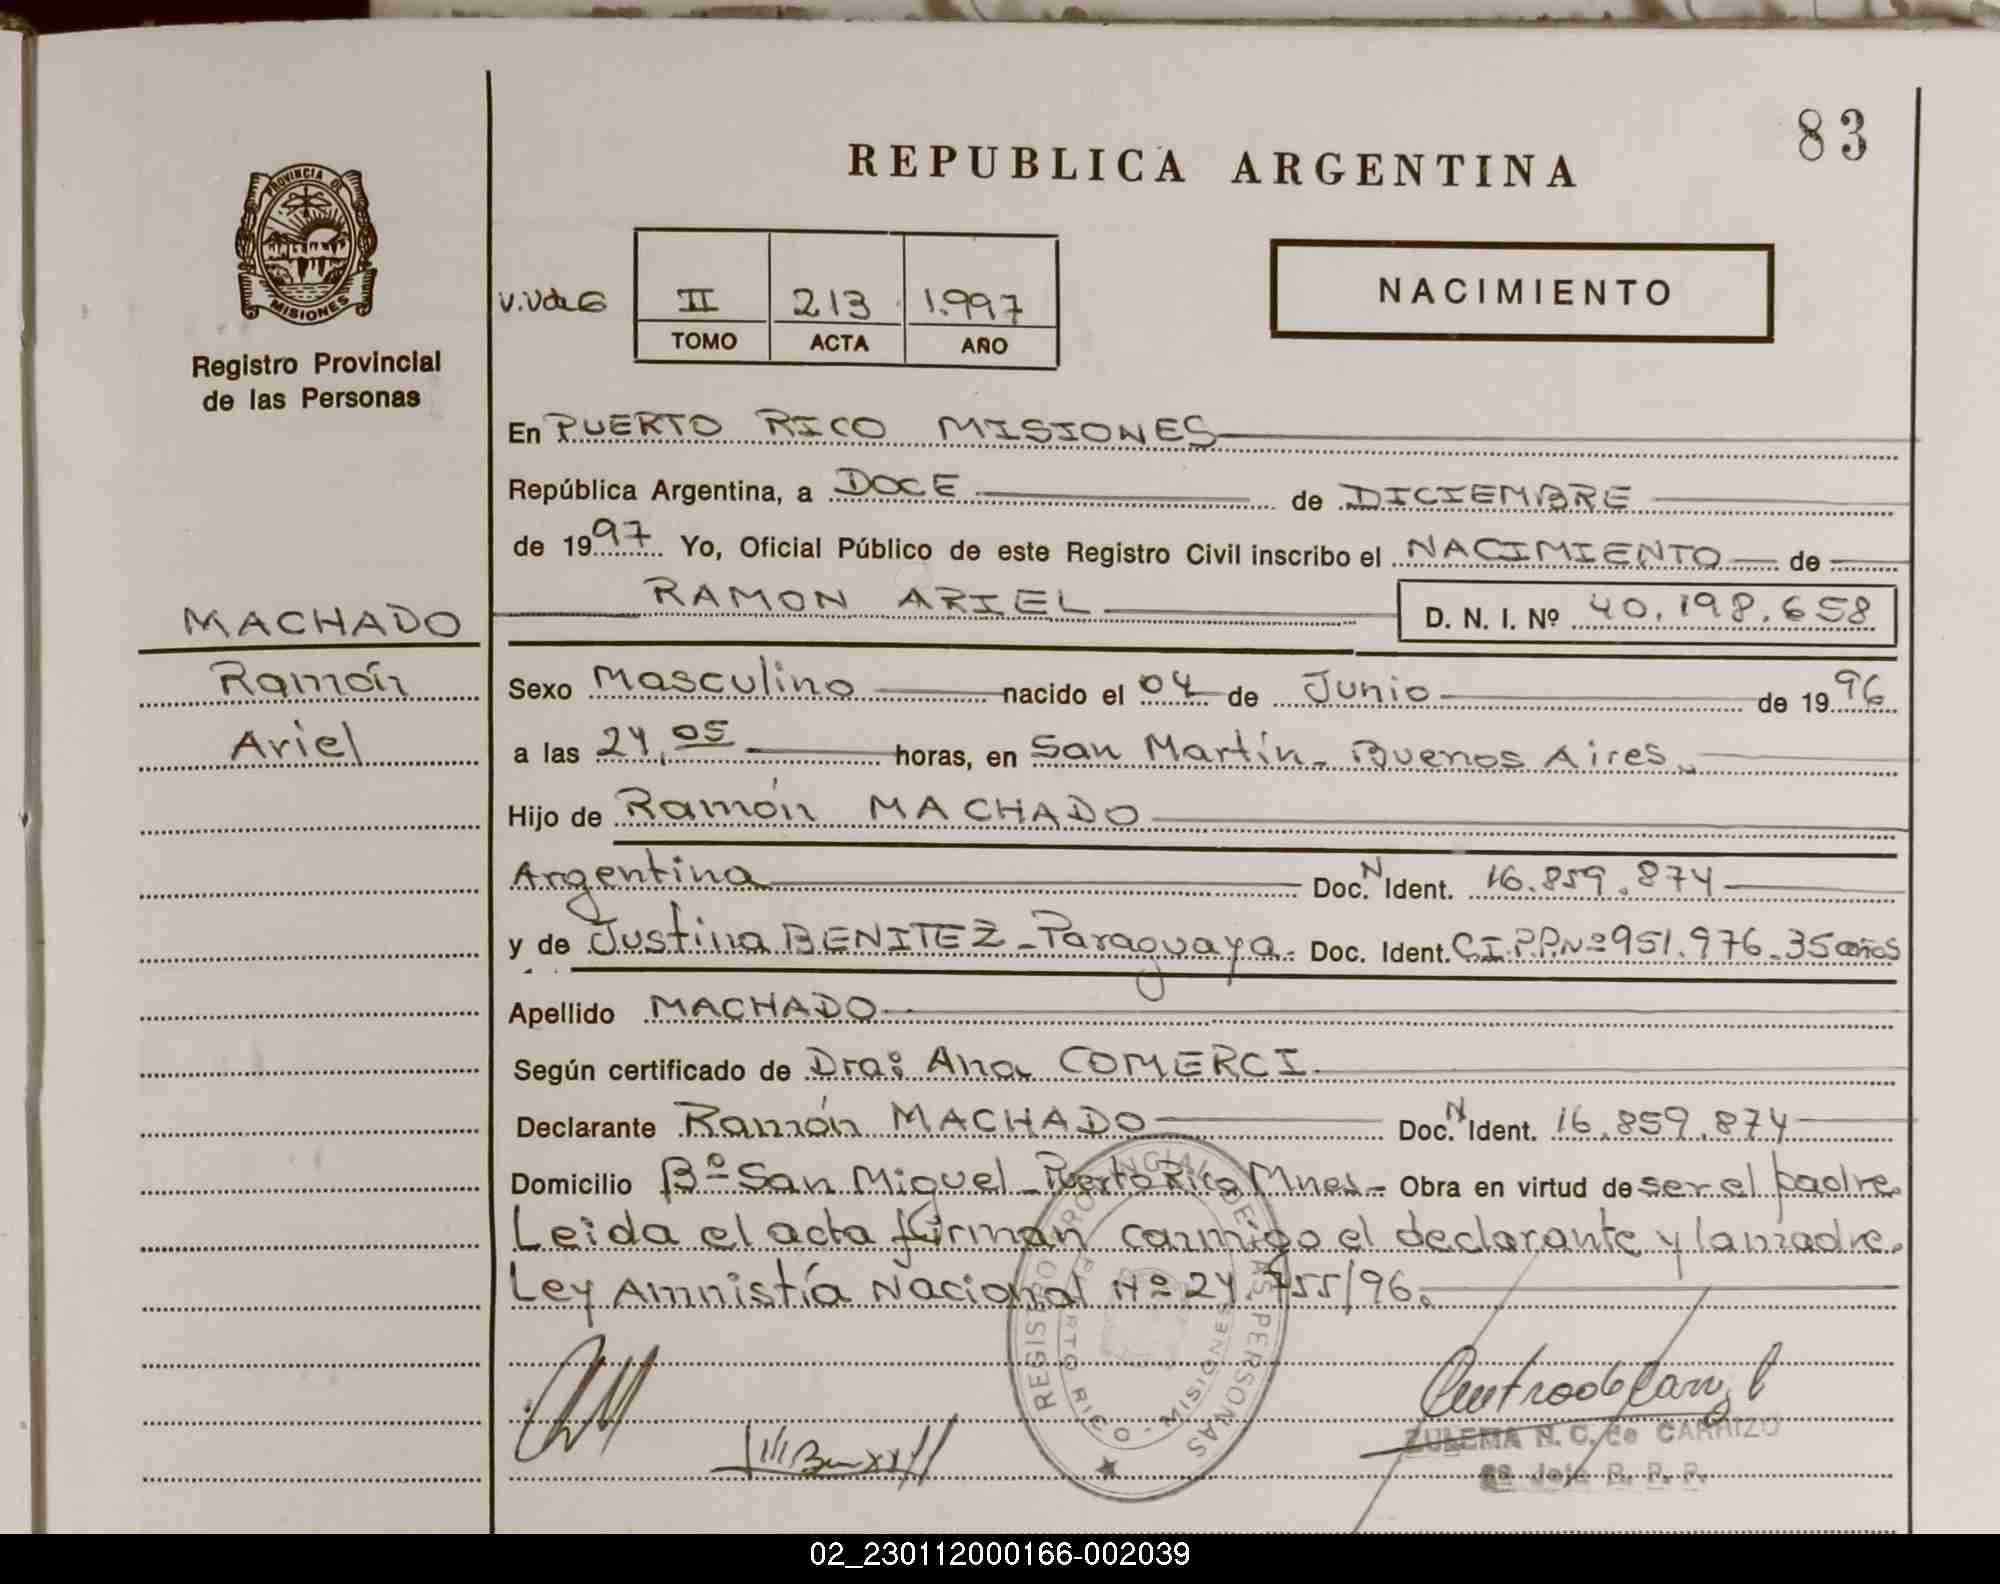 83
REPUBLICA ARGENTINA
PROVINCIA DE
MISIONES
Registro Provincial
de las Personas
NACIMIENTO
V.VdeG
II 213 1.997
TOMO ACTA AÑO
En PUERTO RICO MISIONES
República Argentina, a DOCE de DICIEMBRE
de 1997 Yo, Oficial Público de este Registro Civil inscribo el NACIMIENTO de
RAMON ARIEL D. N. I. Nº 40.198.658
MACHADO
Ramón
Ariel
Sexo Masculino nacido el 04 de Junio de 1996
a las 24,05 horas, en San Martín - Buenos Aires.
Hijo de Ramón MACHADO
Argentina Doc. N Ident. 16.859.874
y de Justina BENITEZ - Paraguaya - Doc. Ident. C.I.P.P.Nº 951.976. 35 años
Apellido MACHADO
Según certificado de Dra: Ana COMERCI
Declarante Ramón MACHADO Doc. N Ident. 16.859.874
Domicilio Bº San Miguel - Puerto Rico Mnes - Obra en virtud de ser el padre.
Leida el acta firman conmigo el declarante y la madre.
Ley Amnistía Nacional Nº 24.755/96.
REGISTRO PROVINCIAL DE LAS PERSONAS
PUERTO RICO - MISIONES
ZULEMA N. C. de CARRIZO
Jefe R. P. P.
02_230112000166-002039